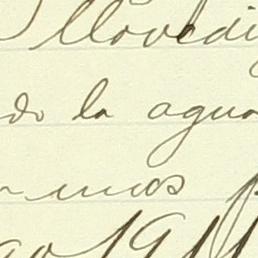 Llovedi
do la agua
unos
go 1911